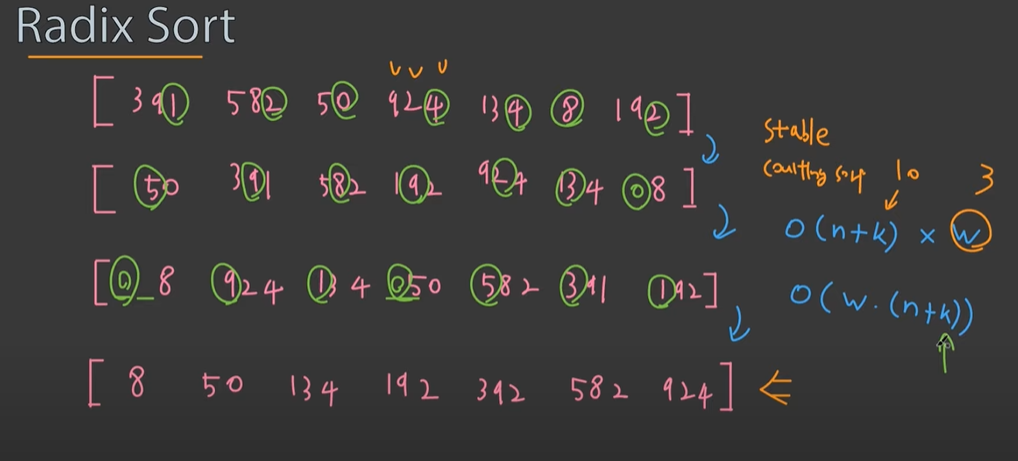 Radix Sort
[ 391 582 50 924 134 8 192 ]
[ 50 391 582 192 924 134 08 ]
[ 0_8 924 134 050 582 391 192 ]
[ 8 50 134 192 392 582 924 ]
stable
counting sort 10 3
O(n+k) × w
O(w.(n+k))